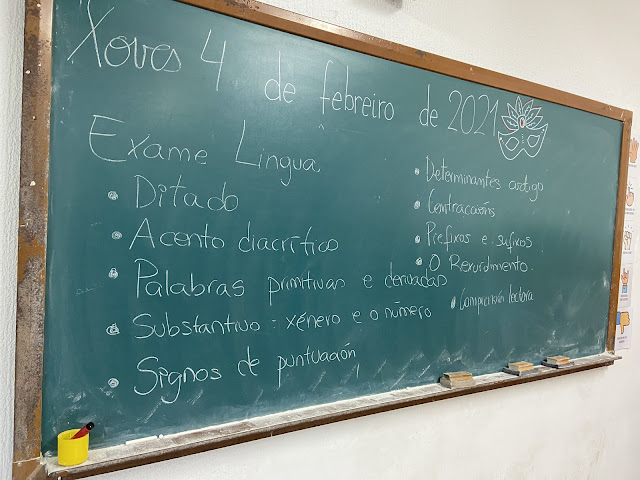 Xoves 4 de febreiro de 2021
Exame Lingua.
• Ditado
• Acento diacrítico
• Palabras primitivas e derivadas
• Substantivo: xénero e o número
• Signos de puntuación
• Determinantes artigo
• Contraccións
• Prefixos e sufixos
• O Rexurdimento.
• Comprensión lectora